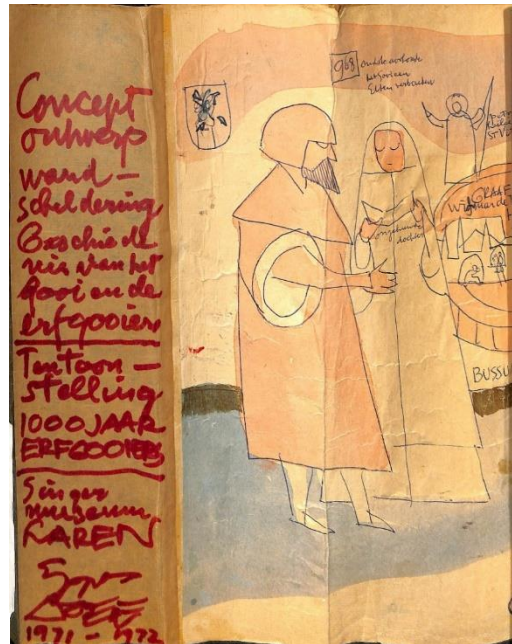 Concept
ontwerp
wand-
schildering
Geschiede
nis van het
Gooi en de
erfgooiers
Tentoon-
stelling
1000 JAAR
ERFGOOIERS
Singer
museum
LAREN
1971-1972
968
ongehuwde
dochter
GRAAF
Wigman de
BUSSU